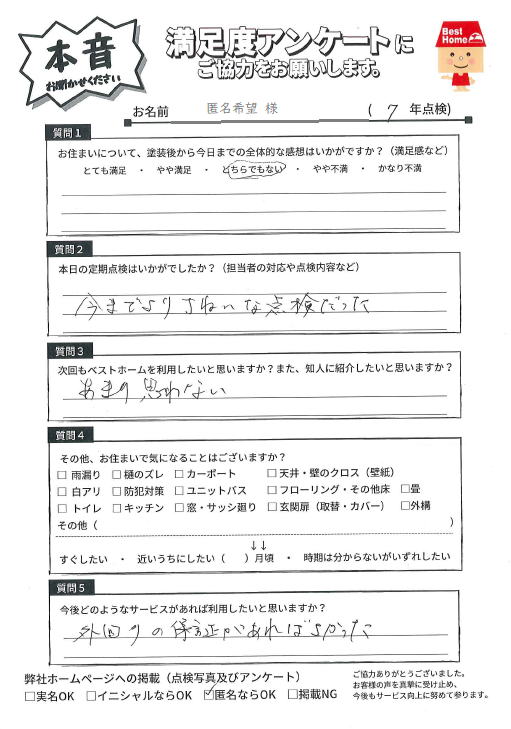 本音
お聞かせください
満足度アンケートに
ご協力をお願いします。
Best Home
お名前 匿名希望 様 ( 7 年点検)
質問1
お住まいについて、塗装後から今日までの全体的な感想はいかがですか？（満足感など）
とても満足 ・ やや満足 ・ どちらでもない ・ やや不満 ・ かなり不満
質問2
本日の定期点検はいかがでしたか？（担当者の対応や点検内容など）
今までよりきれいな点検だった
質問3
次回もベストホームを利用したいと思いますか？また、知人に紹介したいと思いますか？
あまり思わない
質問4
その他、お住まいで気になることはございますか？
□ 雨漏り □ 樋のズレ □ カーポート □ 天井・壁のクロス（壁紙）
□ 白アリ □ 防犯対策 □ ユニットバス □ フローリング・その他床 □畳
□ トイレ □ キッチン □ 窓・サッシ廻り □ 玄関扉（取替・カバー） □外構
その他（ ）
↓↓
すぐしたい ・ 近いうちにしたい（ ）月頃 ・ 時期は分からないがいずれしたい
質問5
今後どのようなサービスがあれば利用したいと思いますか？
外回りの保証があればよかった
弊社ホームページへの掲載（点検写真及びアンケート）
□実名OK □イニシャルならOK ☑匿名ならOK □掲載NG
ご協力ありがとうございました。
お客様の声を真摯に受け止め、
今後もサービス向上に努めて参ります。